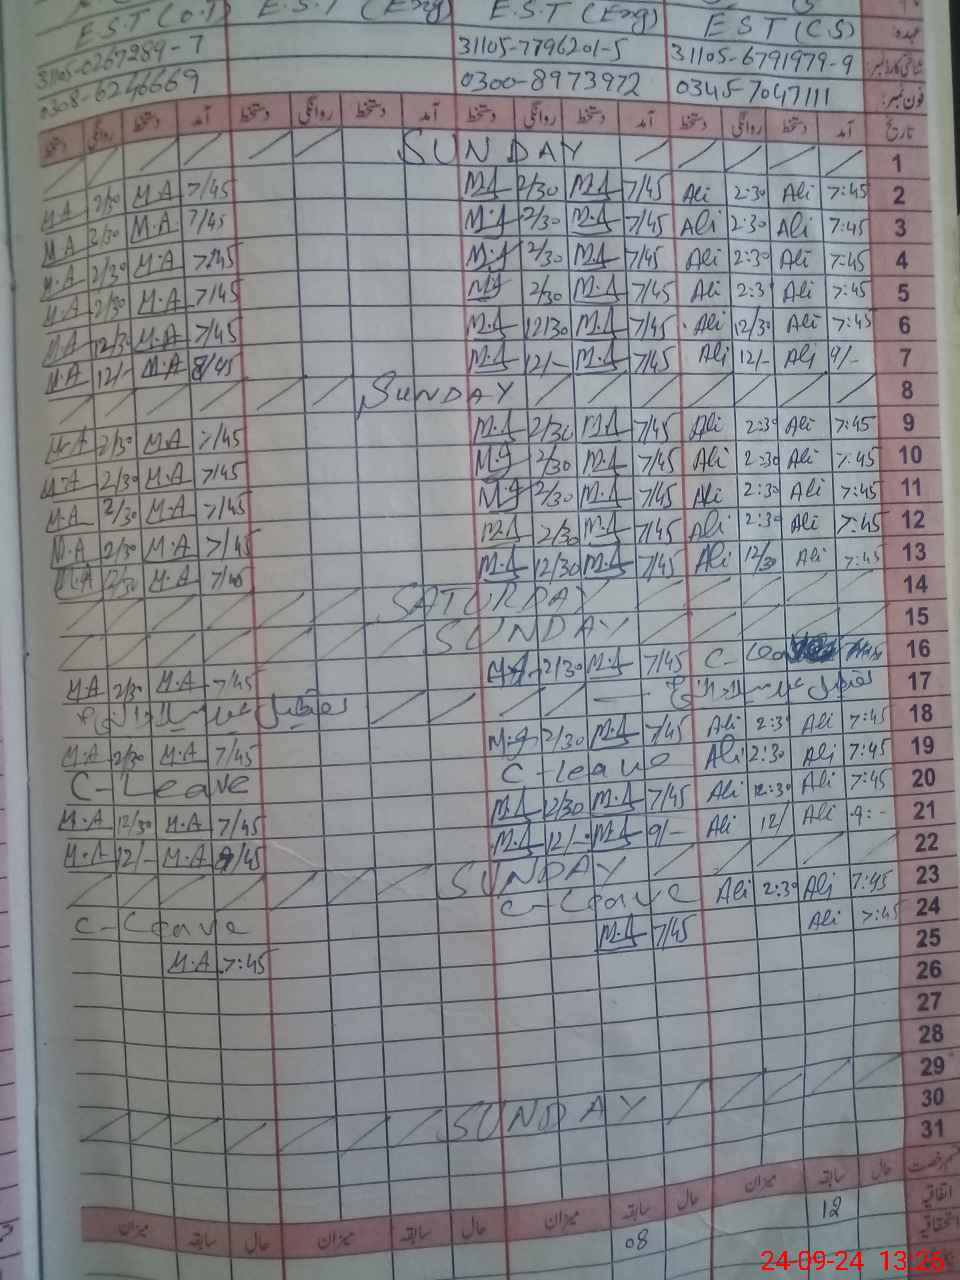 E.S.T (O.T) E.S.T (Eng) E.S.T (Eng) E S T (C.S) عہدہ
31105-0267289-7 31105-7796201-5 31105-6791979-9
0308-6246669 0300-8973972 0345-7047111 فون نمبر:
دستخط روانگی دستخط آمد دستخط روانگی دستخط آمد دستخط روانگی دستخط آمد دستخط روانگی دستخط آمد تاریخ
SUNDAY 1
M.A 2/30 M.A 7/45 M.A 2/30 M.A 7/45 Ali 2:30 Ali 7:45 2
M.A 2/30 M.A 7/45 M.A 2/30 M.A 7/45 Ali 2:30 Ali 7:45 3
M.A 2/30 M.A 7:45 M.A 2/30 M.A 7/45 Ali 2:30 Ali 7:45 4
M.A 2/30 M.A 7/45 M.A 2/30 M.A 7/45 Ali 2:3 Ali 7:45 5
M.A 12/30 M.A 7/45 M.A 12/30 M.A 7/45 Ali 12/30 Ali 7:45 6
M.A 12/- M.A 8/45 M.A 12/- M.A 7/45 Ali 12/- Ali 9/- 7
SUNDAY 8
M.A 2/30 M.A 7/45 M.A 2/30 M.A 7/45 Ali 2:30 Ali 7:45 9
M.A 2/30 M.A 7/45 M.A 2/30 M.A 7/45 Ali 2:30 Ali 7:45 10
M.A 2/30 M.A 7/45 M.A 2/30 M.A 7/45 Ali 2:30 Ali 7:45 11
M.A 2/30 M.A 7/45 M.A 2/30 M.A 7/45 Ali 2:30 Ali 7:45 12
M.A 12/30 M.A 7/45 M.A 12/30 M.A 7/45 Ali 12/30 Ali 7:45 13
SATURDAY 14
SUNDAY 15
M.A 2/30 M.A 7/45 M.A 2/30 M.A 7/45 C- Leave 7:45 16
17
M.A 2/30 M.A 7/45 M.A 2/30 M.A 7/45 Ali 2:30 Ali 7:45 18
C-Leave C-Leave Ali 2:30 Ali 7:45 19
M.A 12/30 M.A 7/45 M.A 12/30 M.A 7/45 Ali 12:30 Ali 7:45 20
M.A 12/- M.A 9/45 M.A 12/- M.A 9/- Ali 12/ Ali 9:- 21
SUNDAY 22
C-Leave C-Leave Ali 2:30 Ali 7:45 23
M.A 7:45 M.A 7/45 Ali 7:45 24
25
26
27
28
SUNDAY 29
30
31
میزان سابقہ حال میزان سابقہ حال میزان سابقہ حال میزان سابقہ حال
08 12 اتفاقیہ
24-09-24 13:26